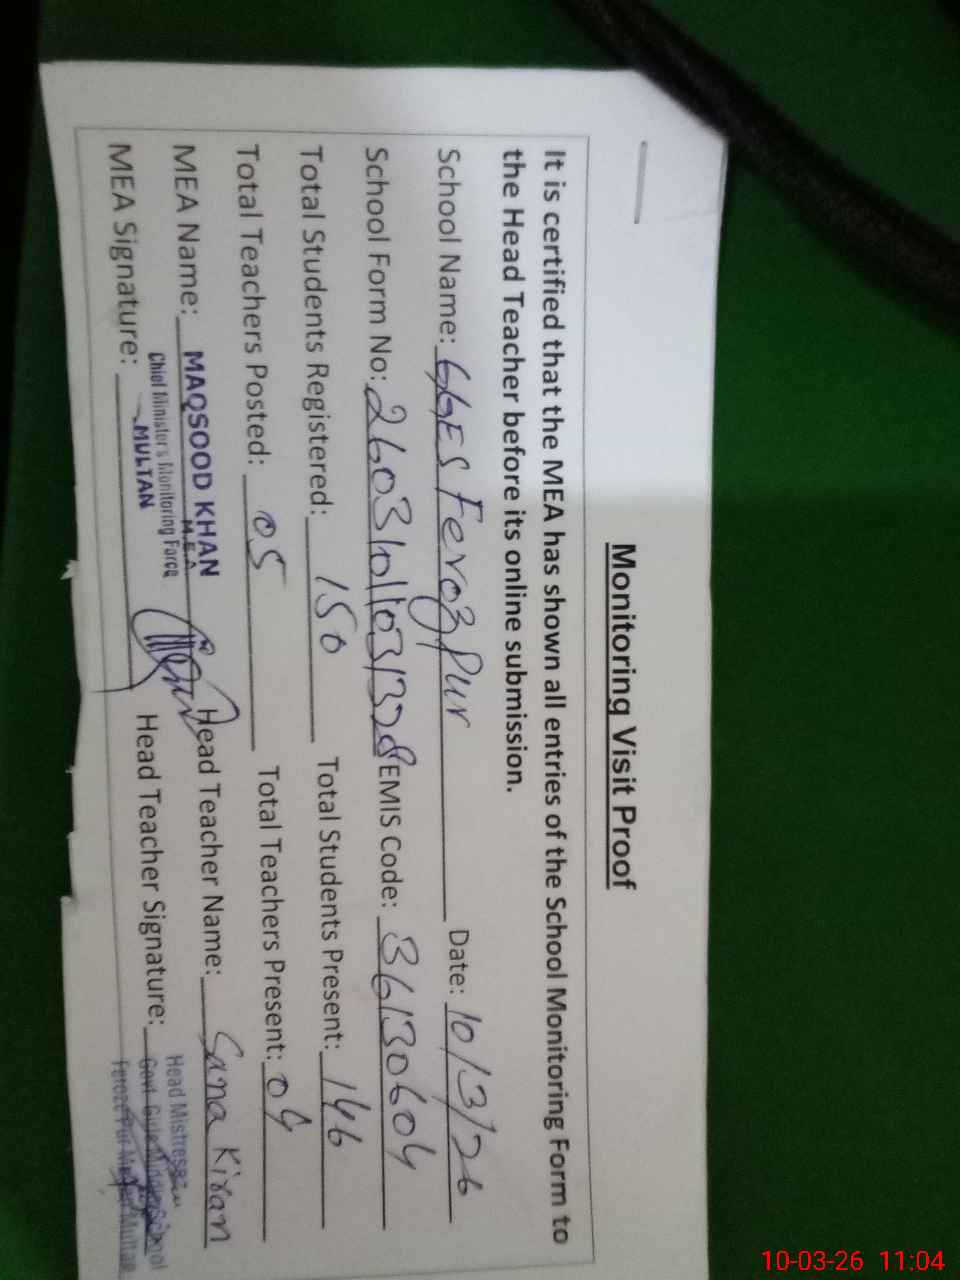 Monitoring Visit Proof
It is certified that the MEA has shown all entries of the School Monitoring Form to
the Head Teacher before its online submission.
School Name: GGES Ferozpur Date: 10/3/26
School Form No: 26031011031328 EMIS Code: 36130604
Total Students Registered: 150 Total Students Present: 146
Total Teachers Posted: 05 Total Teachers Present: 04
MEA Name: MAQSOOD KHAN Head Teacher Name: Sana Kiran
M.E.A
Chief Minister's Monitoring Force
MULTAN
MEA Signature: Head Teacher Signature:
Head Mistress
Govt. Girls School
Feroze Pur Multan
10-03-26 11:04